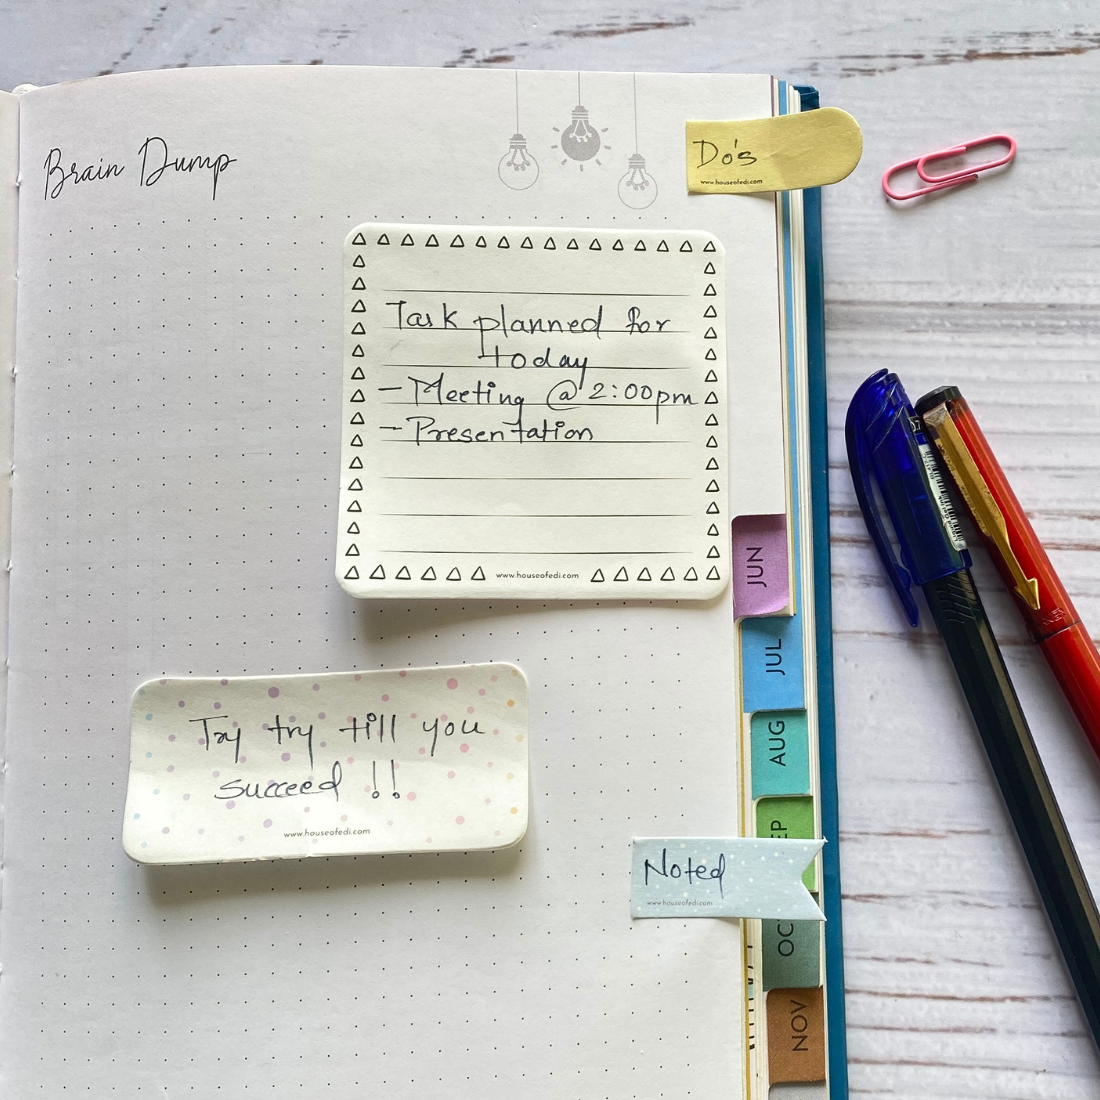 Brain Dump
Do's
www.houseofedi.com
Task planned for
today
- Meeting @ 2:00pm
- Presentation
www.houseofedi.com
JUN
JUL
AUG
Try try till you
succeed !!
www.houseofedi.com
EP
Noted
www.houseofedi.com
OC
NOV